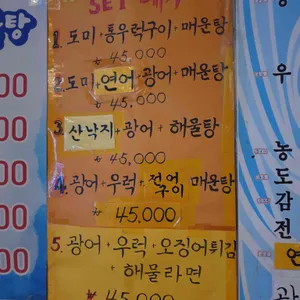 탕
00
00
00
00
00
SET
1. 도미+통우럭구이+매운탕
₩ 45,000
2. 도미+연어+광어+매운탕
₩ 45,000
3. 산낙지+광어+해물탕
₩ 45,000
4. 광어+우럭+매운탕
₩ 45,000
5. 광어+우럭+오징어튀김
+해물라면
₩ 45,000
우
농
도
감
전
연
광